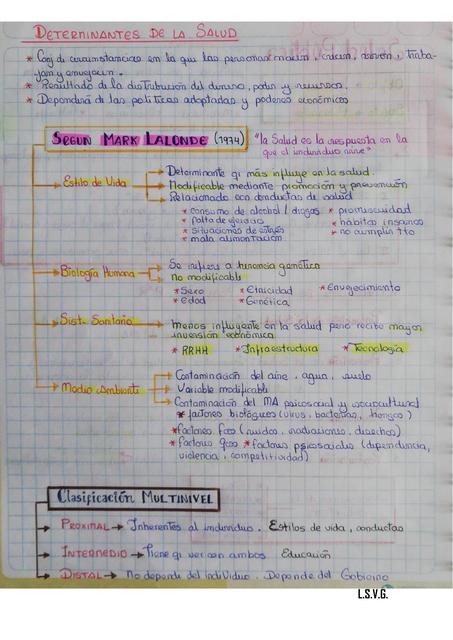 DETERMINANTES DE LA SALUD
* Conj de circunstancias en la que las personas nacen, crecen, viven, traba-
jan y envejecen.
* Resultado de la distribución del dinero, poder y recursos.
* Dependerá de las políticas adoptadas y poderes económicos
SEGÚN MARK LALONDE (1974) "la Salud es la respuesta en la
que el individuo vive"
Estilo de Vida → Determinante q' más influye en la salud.
→ Modificable mediante promoción y prevención
→ Relacionado con conductas de salud
* consumo de alcohol / drogas * promiscuidad
* falta de ejercicio * hábitos insanos
* situaciones de estrés * no cumplir tto
* mala alimentación
Biología Humana → Se refiere a herencia genética
→ no modificable
* Sexo * Etnicidad * Envejecimiento
* Edad * Genética
Sist. Sanitario → menos influyente en la salud pero recibe mayor
inversión económica
* RRHH * Infraestructura * Tecnología
Medio Ambiente → Contaminación del aire, agua, suelo
→ Variable modificable
→ Contaminación del MA psicosocial y sociocultural
* factores biológicos (virus, bacterias, hongos)
* factores fcos (ruidos, radiaciones, desechos)
* factores qcos * factores psicosociales (dependencia,
violencia, competitividad)
Clasificación MULTINIVEL
→ PROXIMAL → Inherentes al individuo. Estilos de vida, conductas
→ INTERMEDIO → Tiene q' ver con ambos Educación
→ DISTAL → No depende del individuo. Depende del Gobierno
L.S.V.G.